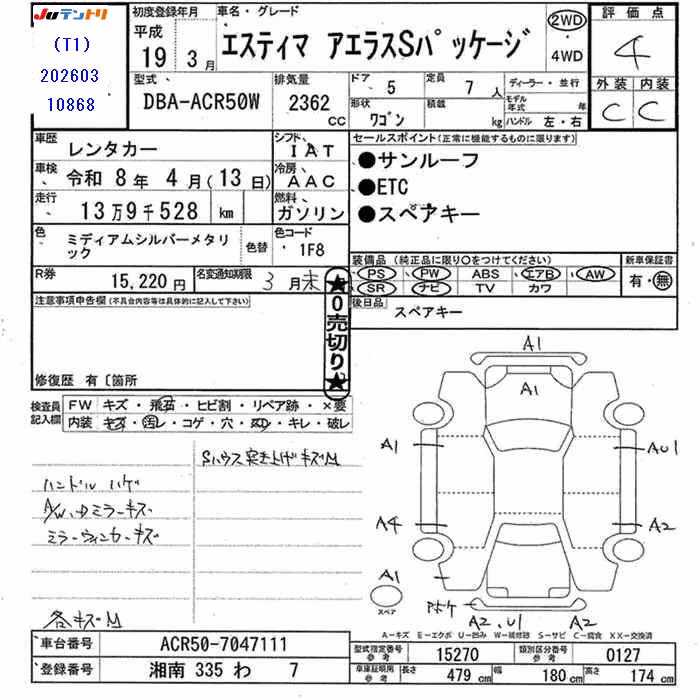 JUテントリ
(T1)
202603
10868
初度登録年月
平成
19年3月
車名・グレード
エスティマ アエラスSパッケージ
2WD
・
4WD
評価点
4
外装 内装
C C
型式
DBA-ACR50W
排気量
2362 CC
ドア 5
定員 7人
形状 ワゴン
積載 kg
ディーラー・並行
モデル年式 年
ハンドル 左・右
車歴 レンタカー
シフト IAT
車検 令和 8年 4月(13日)
冷房 AAC
走行 13万9千528 km
燃料 ガソリン
色 ミディアムシルバーメタリック
色替
色コード 1F8
R券 15,220円
名変通知期限 3月末
セールスポイント(正常に機能するものに限ります)
●サンルーフ
●ETC
●スペアキー
装備品(純正品に限り○をつけてください)
PS PW ABS エアB AW
SR ナビ TV カワ
新車保証書
有・無
後日品 スペアキー
注意事項申告欄(不具合内容等は具体的に記入して下さい)
★0売切り★
修復歴 有〔箇所
検査員記入欄
FW キズ・飛石・ヒビ割・リペア跡・×要
内装 キズ・汚レ・コゲ・穴・スレ・キレ・破レ
Sハウス突き上げキズM
ハンドル ハゲ
A/W、Dミラーキズ
ミラーウィンカーキズ
各キズM
A1
A1
A1
AU1
A4
A2
A1
スペア
A2、U1
A2
A-キズ E-エクボ U-凹み W-補修跡 S-サビ C-腐食 XX-交換済
車台番号 ACR50-7047111
登録番号 湘南 335 わ 7
型式指定番号 参考 15270
類別区分番号 参考 0127
車庫証明用 参考 長さ 479 cm 幅 180 cm 高さ 174 cm